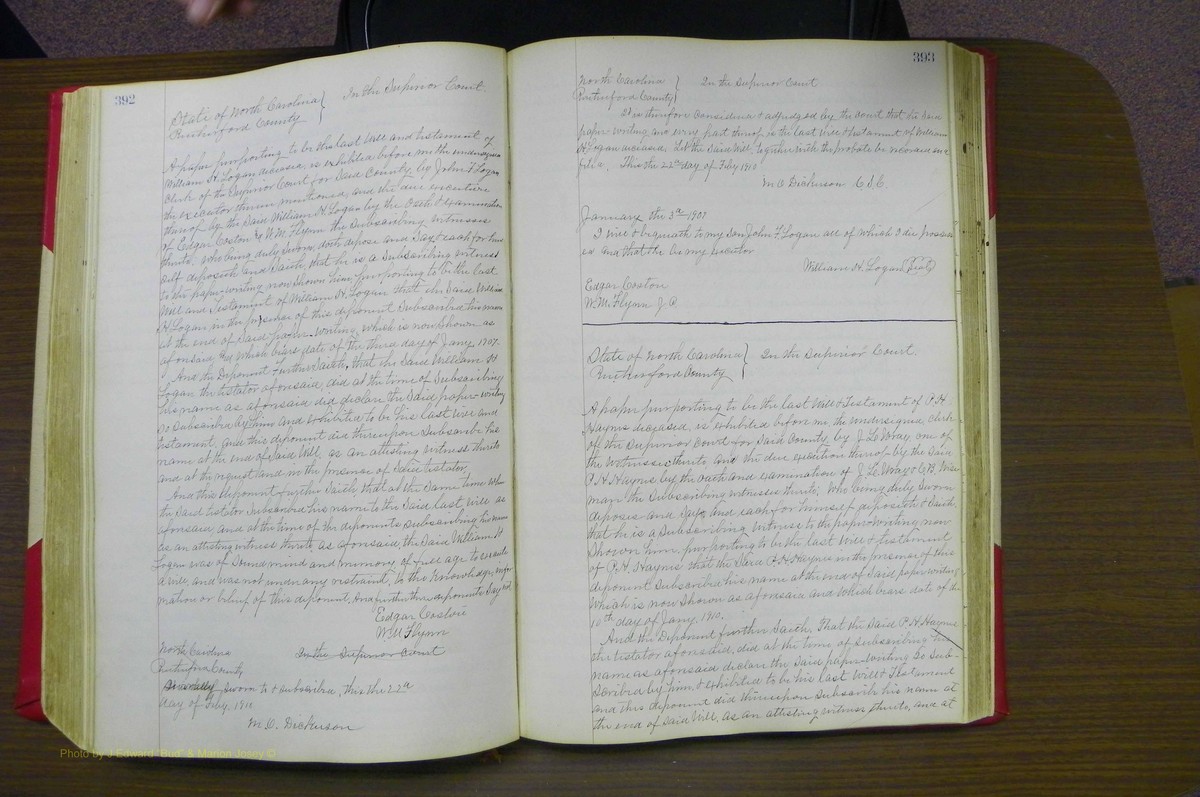 392
State of North Carolina } In the Superior Court.
Rutherford County
A paper purporting to be the last Will and Testament of
William H. Logan deceased, is exhibited before me the undersigned
Clerk of the Superior Court for Said County, by John F Logan
the executor therein mentioned, and the due execution
thereof by the Said William H. Logan by the Oath & examination
of Edgar Coston & W.M. Flynn the Subscribing witnesses
thereto, who being duly Sworn, doth depose and Say & each for him
self deposeth and Saith, that he is a Subscribing witness
to the paper-writing now Shown him purporting to be the last
Will and Testament of William H. Logan that the Said William
H Logan in the presence of this deponent Subscribed his name
at the end of Said paper-writing, which is now Shown as
aforesaid, & which bears date of the third day of Jany. 1907.
And the Deponent Further Saith, that the Said William H
Logan the testator aforesaid, did at the time of Subscribing
his name as aforesaid did declare the Said paper-writing
so Subscribed by him and exhibited to be his last will and
testament, and this deponent did thereupon Subscribe his
name at the end of Said Will, as an attesting witness thereto
and at the request and in the presence of Said testator
And this deponent further Saith, that at the Same time when
the Said testator Subscribed his name to the Said last will as
aforesaid, and at the time of the deponents Subscribing his name
as an attesting witness thereto as aforesaid, the Said William H
Logan was of Sound mind and memory, of full age to execute
a will, and was not under any restraint, to the knowledge, infor
mation or belief of this deponent. And further these deponents Say not
Edgar Coston
W.M Flynn
North Carolina In the Superior Court
Rutherford County
Severally Sworn to & subscribed, this the 22nd
day of Feby. 1910
M. O. Dickerson
393
North Carolina } In the Superior Court
Rutherford County
It is therefore Considered & adjudged by the Court that the Said
paper-writing and every part thereof is the last Will & Testament of William
H Logan deceased. Let the Said Will, together with the probate be recorded and
filed. This the 22nd day of Feby 1910
M O Dickerson C.S.C.
January the 3rd 1907
I give & bequeath to my Son John F Logan all of which I die possess
ed and that he be my executor
William H. Logan (Seal)
Edgar Coston
W. M. Flynn J. P.
State of North Carolina } In the Superior Court.
Rutherford County
A paper purporting to be the last Will & Testament of P. H
Haynes deceased, is exhibited before me the undersigned Clerk
of the Superior Court for Said County, by J. L. Wray, one of
the witnesses thereto and the due execution thereof by the Said
P. H. Haynes by the oath and examination of J. L. Wray & C. B. Wise
man the Subscribing witnesses thereto, Who being duly Sworn
deposes and Says, and each for himself deposeth & Saith,
that he is a Subscribing witness to the paper-writing now
Shown him purporting to be the last Will & testament
of P. H. Haynes that the Said P. H. Haynes in the presence of this
deponent Subscribed his name at the end of Said paper writing
which is now Shown as aforesaid and which bears date of the
10th day of Jany. 1910.
And the Deponent further Saith, That the Said P. H. Haynes
the testator aforesaid, did at the time of Subscribing his
name as aforesaid declare the Said paper-writing So Sub-
scribed by him & exhibited to be his last Will & Testament
and this deponent did thereupon Subscribe his name at
the end of Said Will, as an attesting witness thereto, and at
Photo by J Edward "Bud" & Marion Josey ©